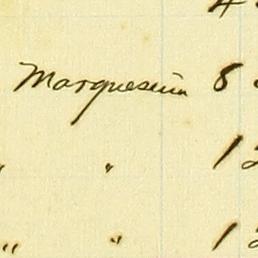 4
Marquesiun 8
" " 12
" " 12